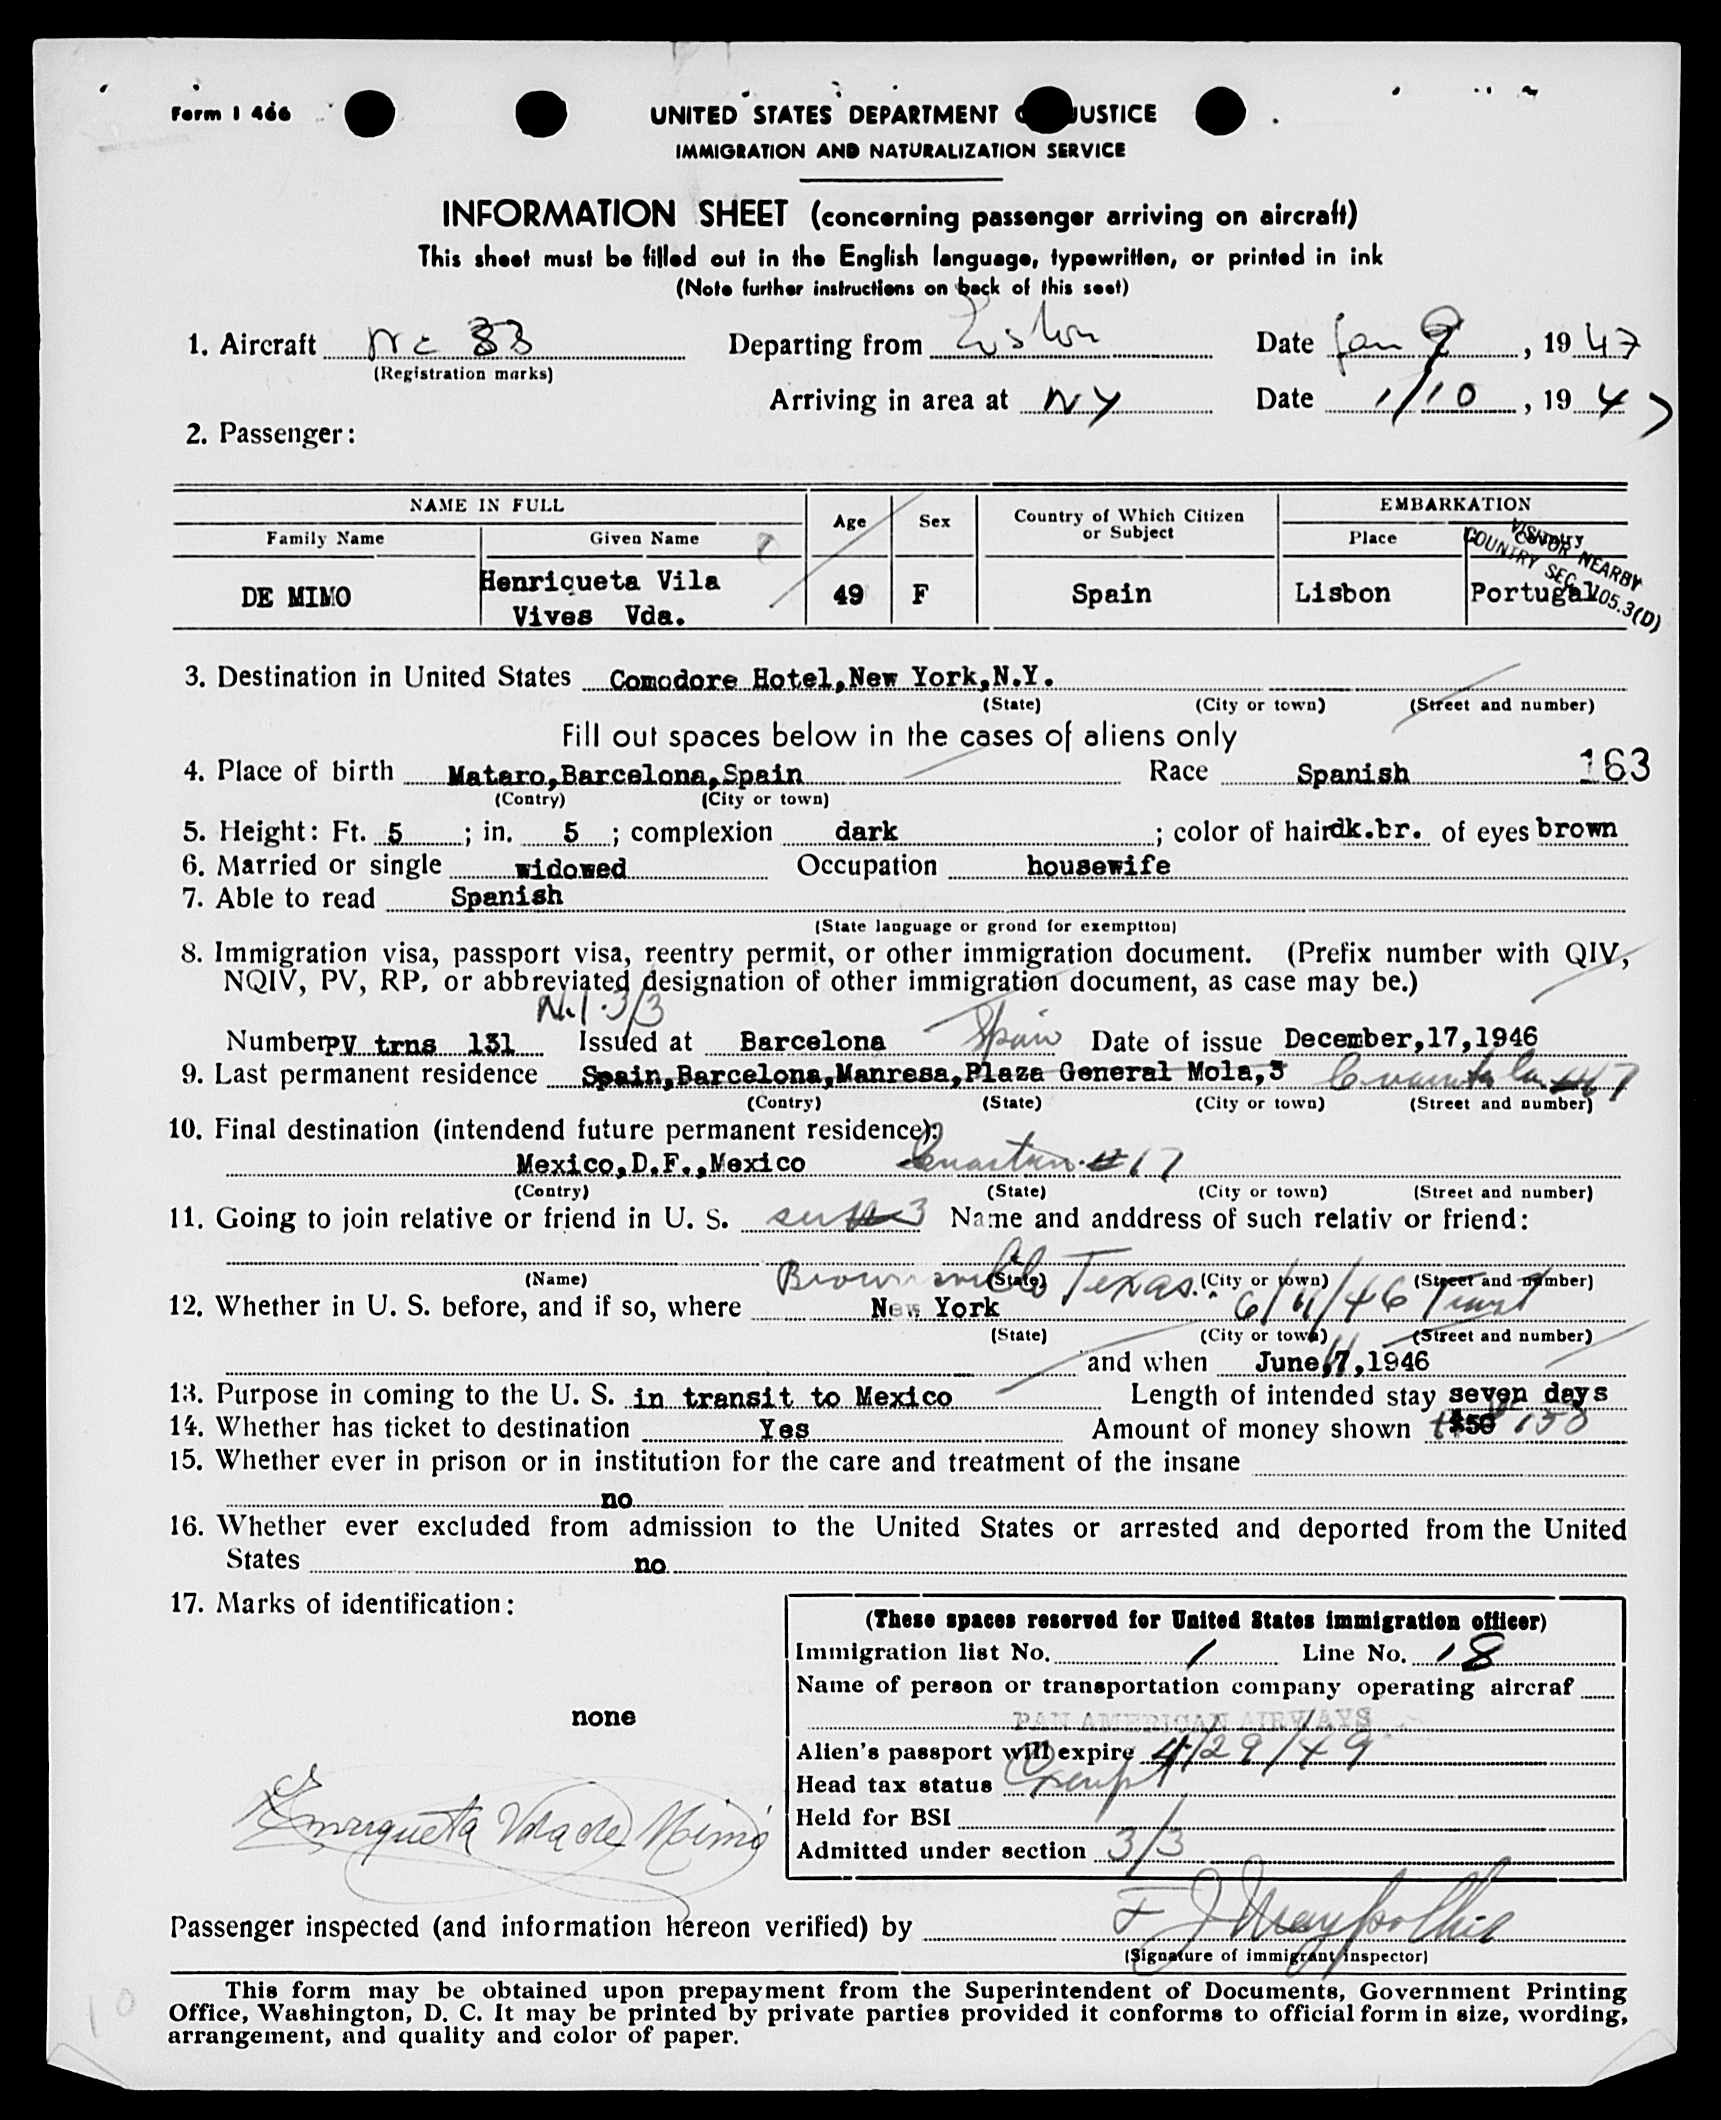 Form I 466
UNITED STATES DEPARTMENT O JUSTICE
IMMIGRATION AND NATURALIZATION SERVICE
INFORMATION SHEET (concerning passenger arriving on aircraft)
This sheet must be filled out in the English language, typewritten, or printed in ink
(Note further instructions on back of this seet)
1. Aircraft NC 88 Departing from Lisbon Date Jan 9, 1947
(Registration marks)
Arriving in area at NY Date 1/10, 1947
2. Passenger:
NAME IN FULL Age Sex Country of Which Citizen or Subject EMBARKATION
Family Name Given Name Place Country
VISITOR NEARBY
COUNTRY SEC. 105.3(D)
DE MIMO Henriqueta Vila 49 F Spain Lisbon Portugal
Vives Vda.
3. Destination in United States Comodore Hotel,New York,N.Y.
(State) (City or town) (Street and number)
Fill out spaces below in the cases of aliens only
4. Place of birth Mataro,Barcelona,Spain Race Spanish 163
(Contry) (City or town)
5. Height: Ft. 5; in. 5; complexion dark; color of hair dk.br. of eyes brown
6. Married or single widowed Occupation housewife
7. Able to read Spanish
(State language or grond for exemptton)
8. Immigration visa, passport visa, reentry permit, or other immigration document. (Prefix number with QIV,
NQIV, PV, RP, or abbreviated designation of other immigration document, as case may be.)
3/3
Number PV trns 131 Issued at Barcelona Spain Date of issue December,17,1946
9. Last permanent residence Spain,Barcelona,Manresa,Plaza General Mola,3
(Contry) (State) (City or town) (Street and number)
10. Final destination (intendend future permanent residence):
Mexico,D.F.,Mexico #17
(Contry) (State) (City or town) (Street and number)
11. Going to join relative or friend in U. S. Name and anddress of such relativ or friend:
(Name) (State) (City or town) (Street and number)
Brownsville Texas. 6/11/46 Transit
12. Whether in U. S. before, and if so, where New York
(State) (City or town) (Street and number)
and when June,7,1946
13. Purpose in coming to the U. S. in transit to Mexico Length of intended stay seven days
14. Whether has ticket to destination Yes Amount of money shown $50 150
15. Whether ever in prison or in institution for the care and treatment of the insane
no
16. Whether ever excluded from admission to the United States or arrested and deported from the United
States no
17. Marks of identification:
none
(These spaces reserved for United States immigration officer)
Immigration list No. 1 Line No. 18
Name of person or transportation company operating aircraf
PAN AMERICAN AIRWAYS
Alien's passport will expire 4/29/49
Head tax status Exempt
Held for BSI
Admitted under section 3/3
Enriqueta Vda de Mimó
Passenger inspected (and information hereon verified) by
(Signature of immigrant inspector)
This form may be obtained upon prepayment from the Superintendent of Documents, Government Printing
Office, Washington, D. C. It may be printed by private parties provided it conforms to official form in size, wording,
arrangement, and quality and color of paper.
10